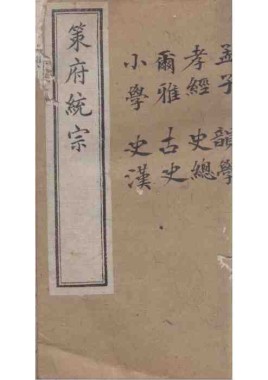 孟子 韻學
孝經 史總
爾雅 古史
小學 史漢
策府統宗